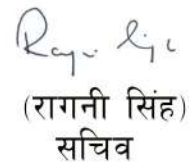 (रागनी सिंह)
सचिव